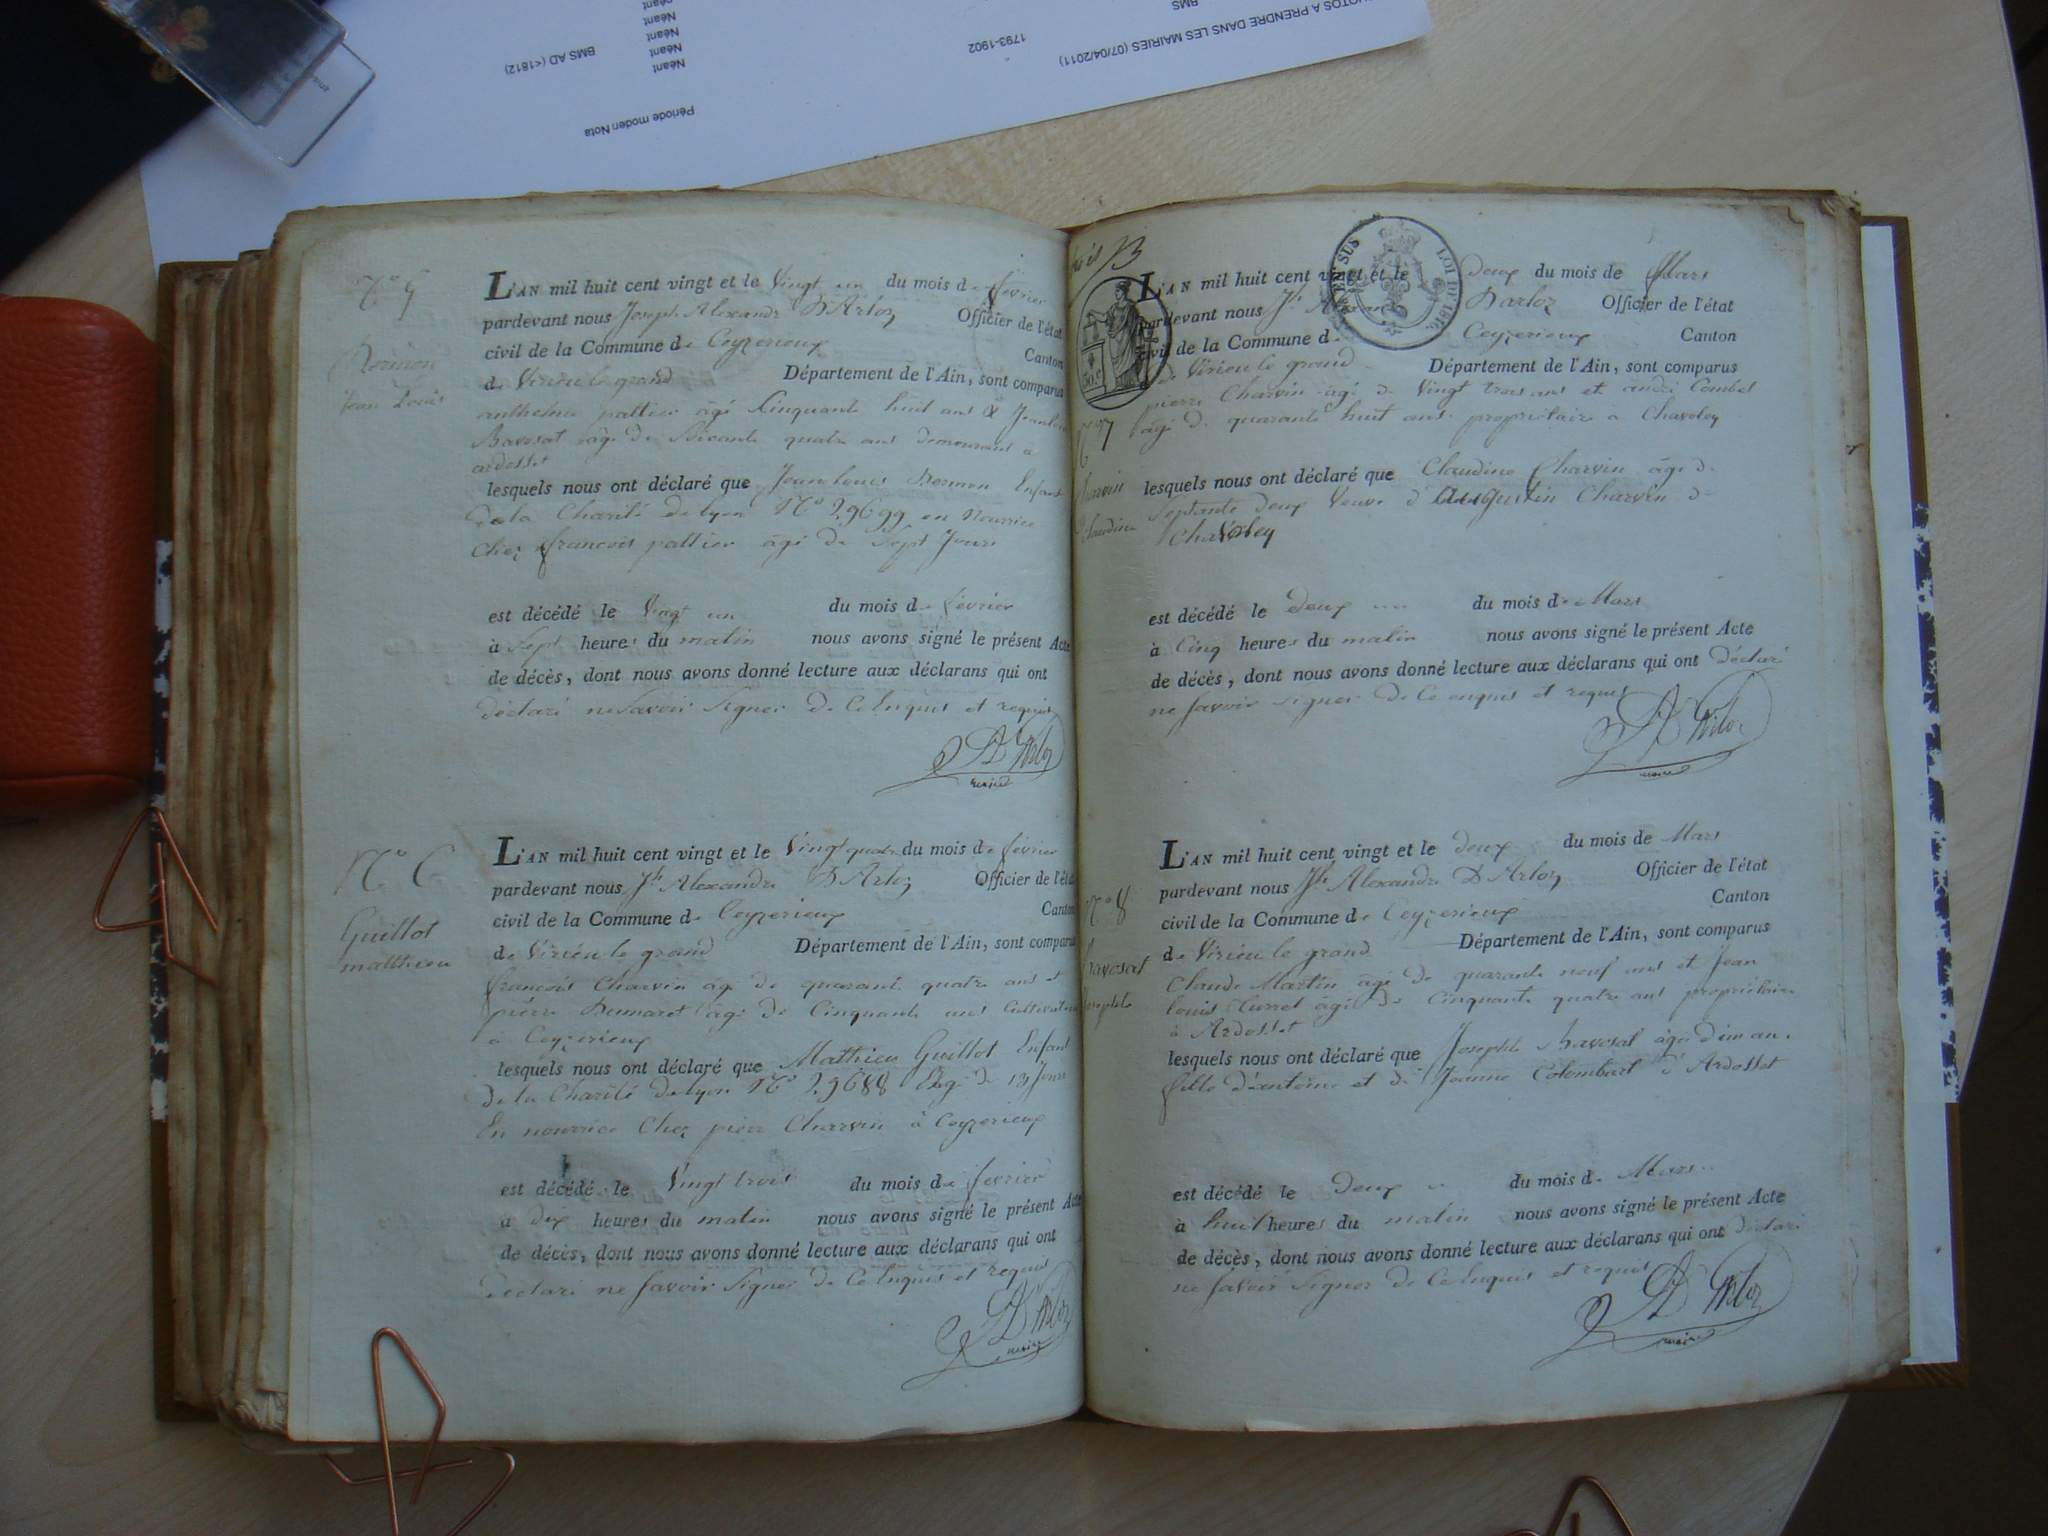 PHOTOS A PRENDRE DANS LES MAIRIES (07/04/2011)
BMS
1793-1902
BMS AD (<1812)
Néant
Néant
Néant
Néant
Période moden Nota
N.° 5
Jean Louis
L'AN mil huit cent vingt et le Vingt un du mois de fevrier
pardevant nous Joseph Alexandre D'Arloz Officier de l'état
civil de la Commune de Ceyzerieux Canton
de Virieu le grand Département de l'Ain, sont comparus
anthelme pattier âgé Cinquante huit ans & Jeanlouis
Bavosat âgé de Soixante quatre ans demeurant à
ardosset
lesquels nous ont déclaré que Jeanlouis Enfant
de la Charité de lyon N.° 29699 en Nourrice
Chez francois pattier âgé de Sept Jours
est décédé le Vingt un du mois de fevrier
à Sept heures du matin nous avons signé le présent Acte
de décès, dont nous avons donné lecture aux déclarans qui ont
déclaré ne Savoir Signer de Ce Enquis et requis
D'Arloz
maire
N.° 6
Guillot
matthieu
L'AN mil huit cent vingt et le Vingt quatre du mois de fevrier
pardevant nous J.h Alexandre D'Arloz Officier de l'état
civil de la Commune de Ceyzerieux Canton
de Virieu le grand Département de l'Ain, sont comparus
francois Charvin âgé de quarante quatre ans et
pierre Dumaret âgé de Cinquante ans Cultivateurs
à Ceyzerieux
lesquels nous ont déclaré que Mathieu Guillot Enfant
de la Charité de lyon N.° 29688 Âgé de 13 Jours
En nourrice Chez pierre Charvin à Ceyzerieux
est décédé le Vingt trois du mois de fevrier
à dix heures du matin nous avons signé le présent Acte
de décès, dont nous avons donné lecture aux déclarans qui ont
declaré ne Savoir Signer de Ce Enquis et requis
D'Arloz
maire
EN SUS
LOI DE 1816
50.c
N.° 7
Charvin
Claudine
L'AN mil huit cent vingt et le deux du mois de Mars
pardevant nous J.h Darloz Officier de l'état
civil de la Commune de Ceyzerieux Canton
de Virieu le grand Département de l'Ain, sont comparus
pierre Charvin âgé de Vingt trois ans et andré Combet
âgé de quarante huit ans propriétaire à Chavoley
lesquels nous ont déclaré que Claudine Charvin âgé de
Septante deux Veuve d'Augustin Charvin de
Chavoley
est décédé le deux du mois de Mars
à Cinq heures du matin nous avons signé le présent Acte
de décès, dont nous avons donné lecture aux déclarans qui ont déclaré
ne Savoir Signer de Ce enquis et requis
D'Arloz
maire
N.° 8
Bavosat
Josephte
L'AN mil huit cent vingt et le deux du mois de Mars
pardevant nous J.h Alexandre D'Arloz Officier de l'état
civil de la Commune de Ceyzerieux Canton
de Virieu le grand Département de l'Ain, sont comparus
Claude Martin âgé de quarante neuf ans et Jean
louis Curret âgé de Cinquante quatre ans propriétaire
à Ardosset
lesquels nous ont déclaré que Josephte Bavosat âgé d'un an
fille d'antoine et de Jeanne Colombart d'Ardosset
est décédé le deux du mois de Mars
à huit heures du matin nous avons signé le présent Acte
de décès, dont nous avons donné lecture aux déclarans qui ont déclaré
ne Savoir Signer de Ce Enquis et requis
D'Arloz
maire